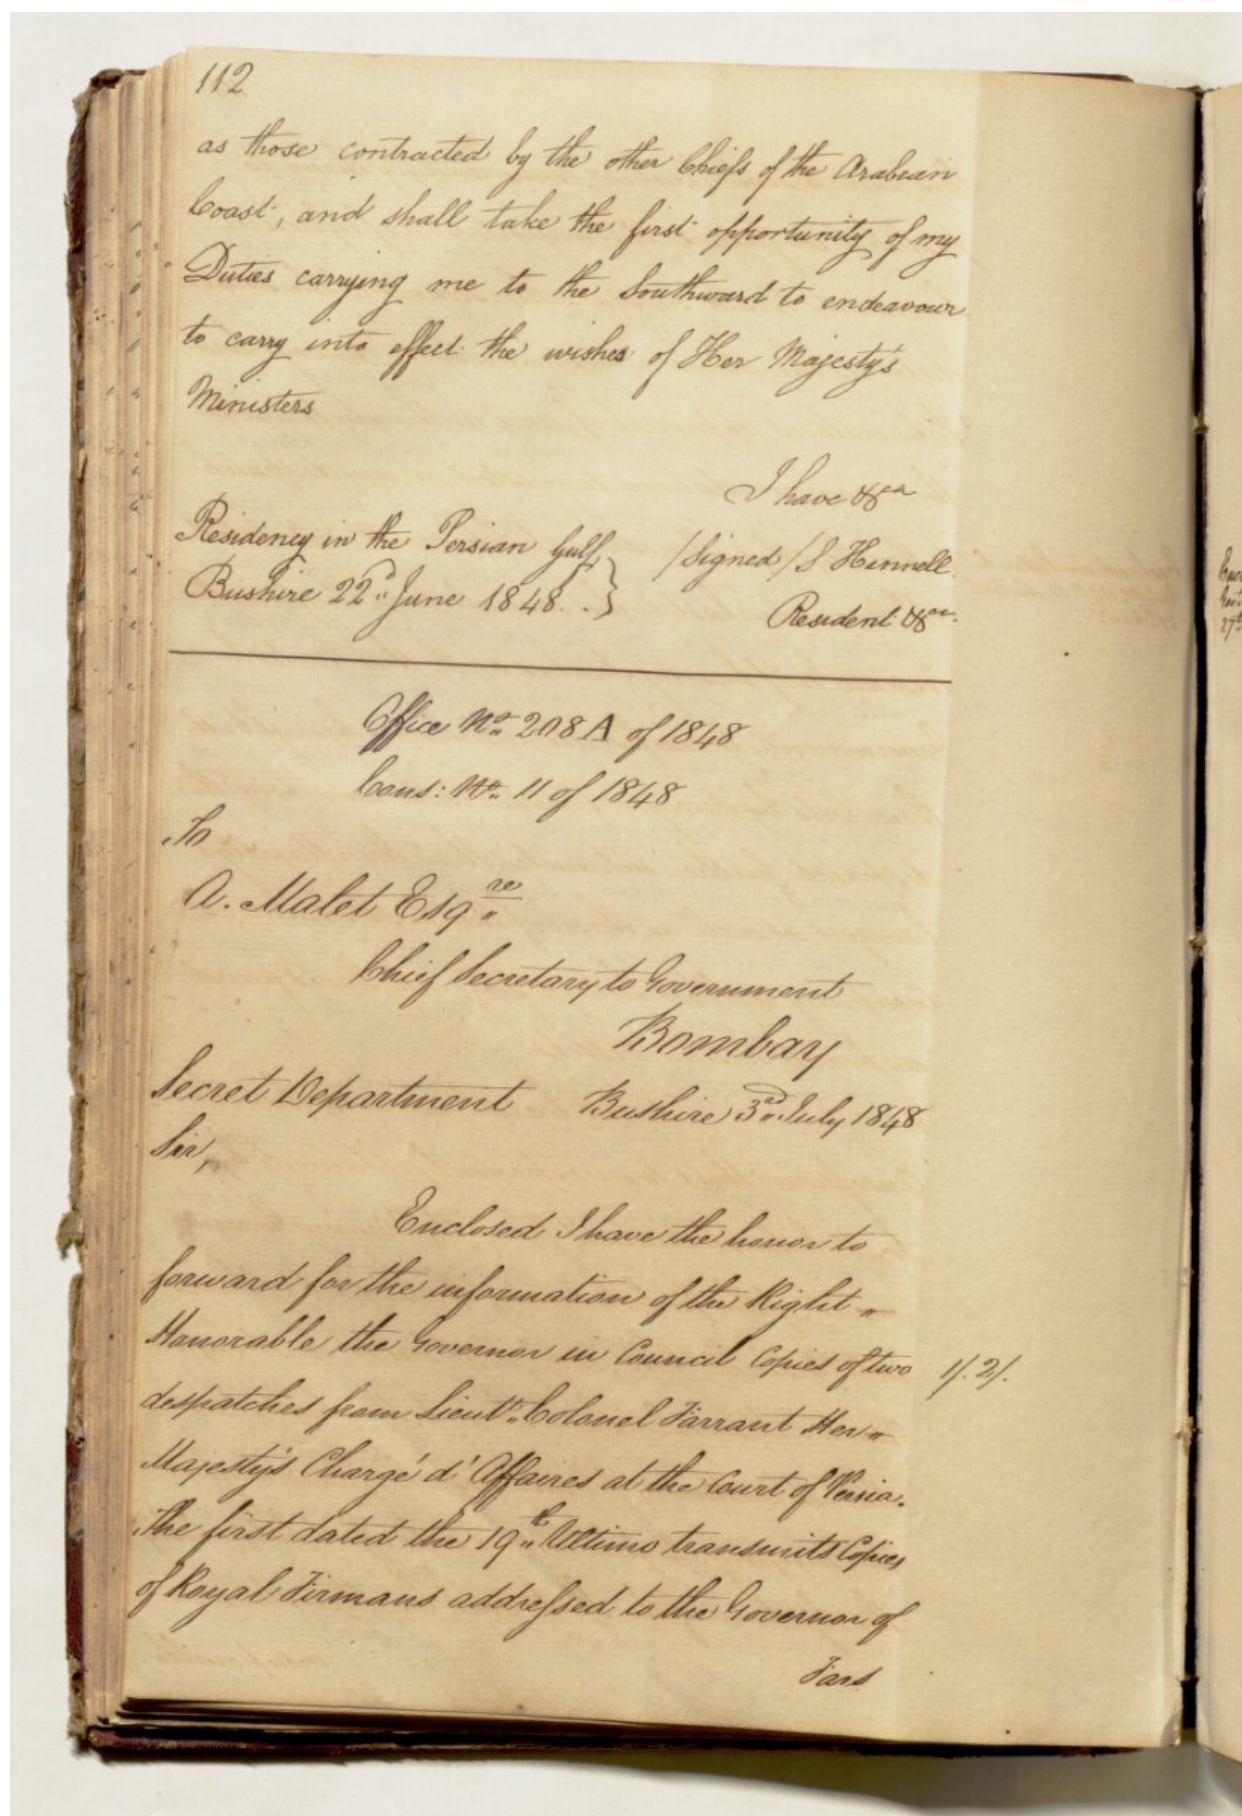 112
as those contracted by the other Chiefs of the Arabian
Coast, and shall take the first opportunity of my
Duties carrying me to the Southward to endeavour
to carry into effect the wishes of Her Majesty's
Ministers
I have &ca
Residency in the Persian Gulf } /Signed/ S Hennell
Bushire 22d June 1848 } Resident &ca
Office No 208 A of 1848
Cons: No 11 of 1848
To
A. Malet Esqre
Chief Secretary to Government
Bombay
Secret Department Bushire 3d July 1848
Sir,
Enclosed I have the honor to
forward for the information of the Right
Honorable the Governor in Council Copies of two 1/. 2/.
despatches from Lieutt Colonel Farrant Her
Majesty's Chargé d'Affaires at the Court of Persia.
The first dated the 19th Ultimo transmits Copies
of Royal Firmans addressed to the Governor of
Fars
27th